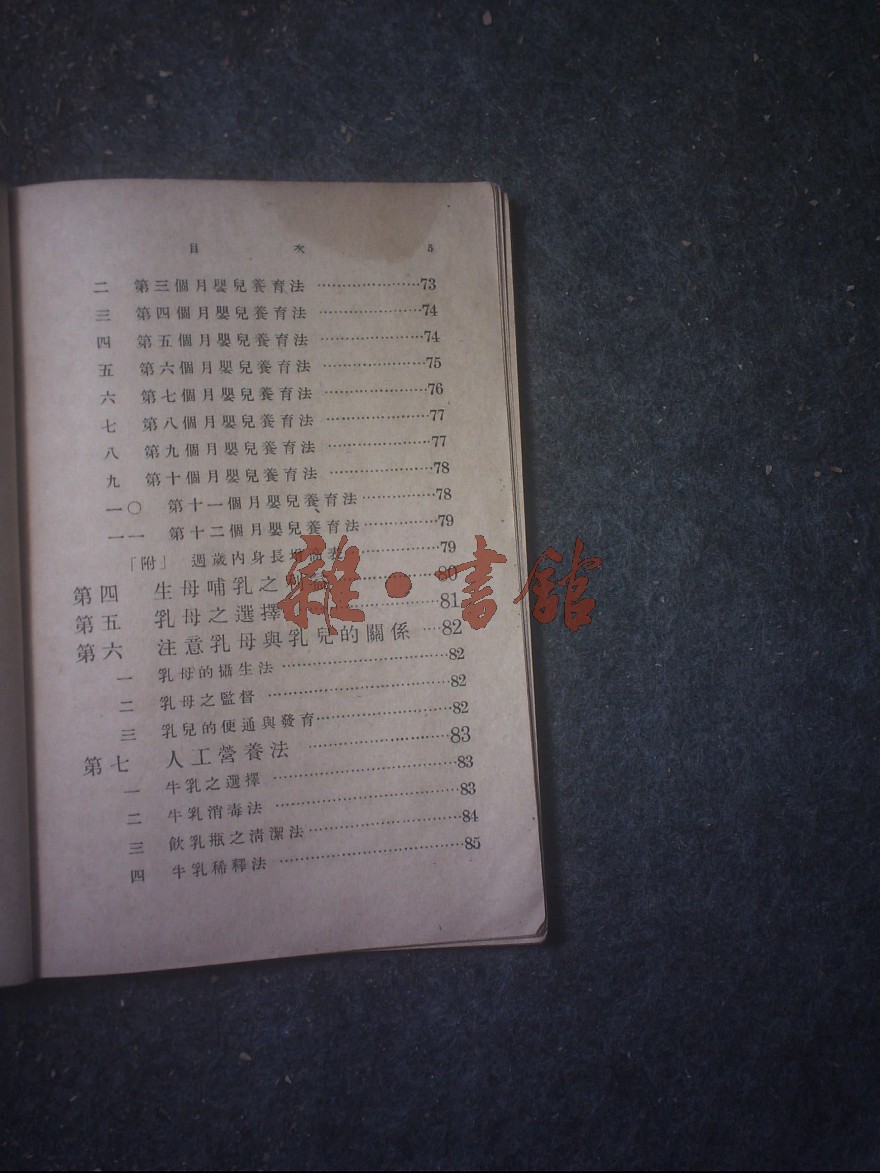 目次 5
二 第三個月嬰兒養育法 ……………………73
三 第四個月嬰兒養育法 ……………………74
四 第五個月嬰兒養育法 ……………………74
五 第六個月嬰兒養育法 ……………………75
六 第七個月嬰兒養育法 ……………………76
七 第八個月嬰兒養育法 ……………………77
八 第九個月嬰兒養育法 ……………………77
九 第十個月嬰兒養育法 ……………………78
一〇 第十一個月嬰兒養育法 ………………78
一一 第十二個月嬰兒養育法 ………………79
「附」 週歲內身長 表 ………………79
第四 生母哺乳之 ………………80
第五 乳母之選擇 ………………81
第六 注意乳母與乳兒的關係 …82
一 乳母的攝生法 ……………………………82
二 乳母之監督 ………………………………82
三 乳兒的便通與發育 ………………………82
第七 人工營養法 ……………………83
一 牛乳之選擇 ………………………………83
二 牛乳消毒法 ………………………………83
三 飲乳瓶之清潔法 …………………………84
四 牛乳稀釋法 ………………………………85
雜·書館